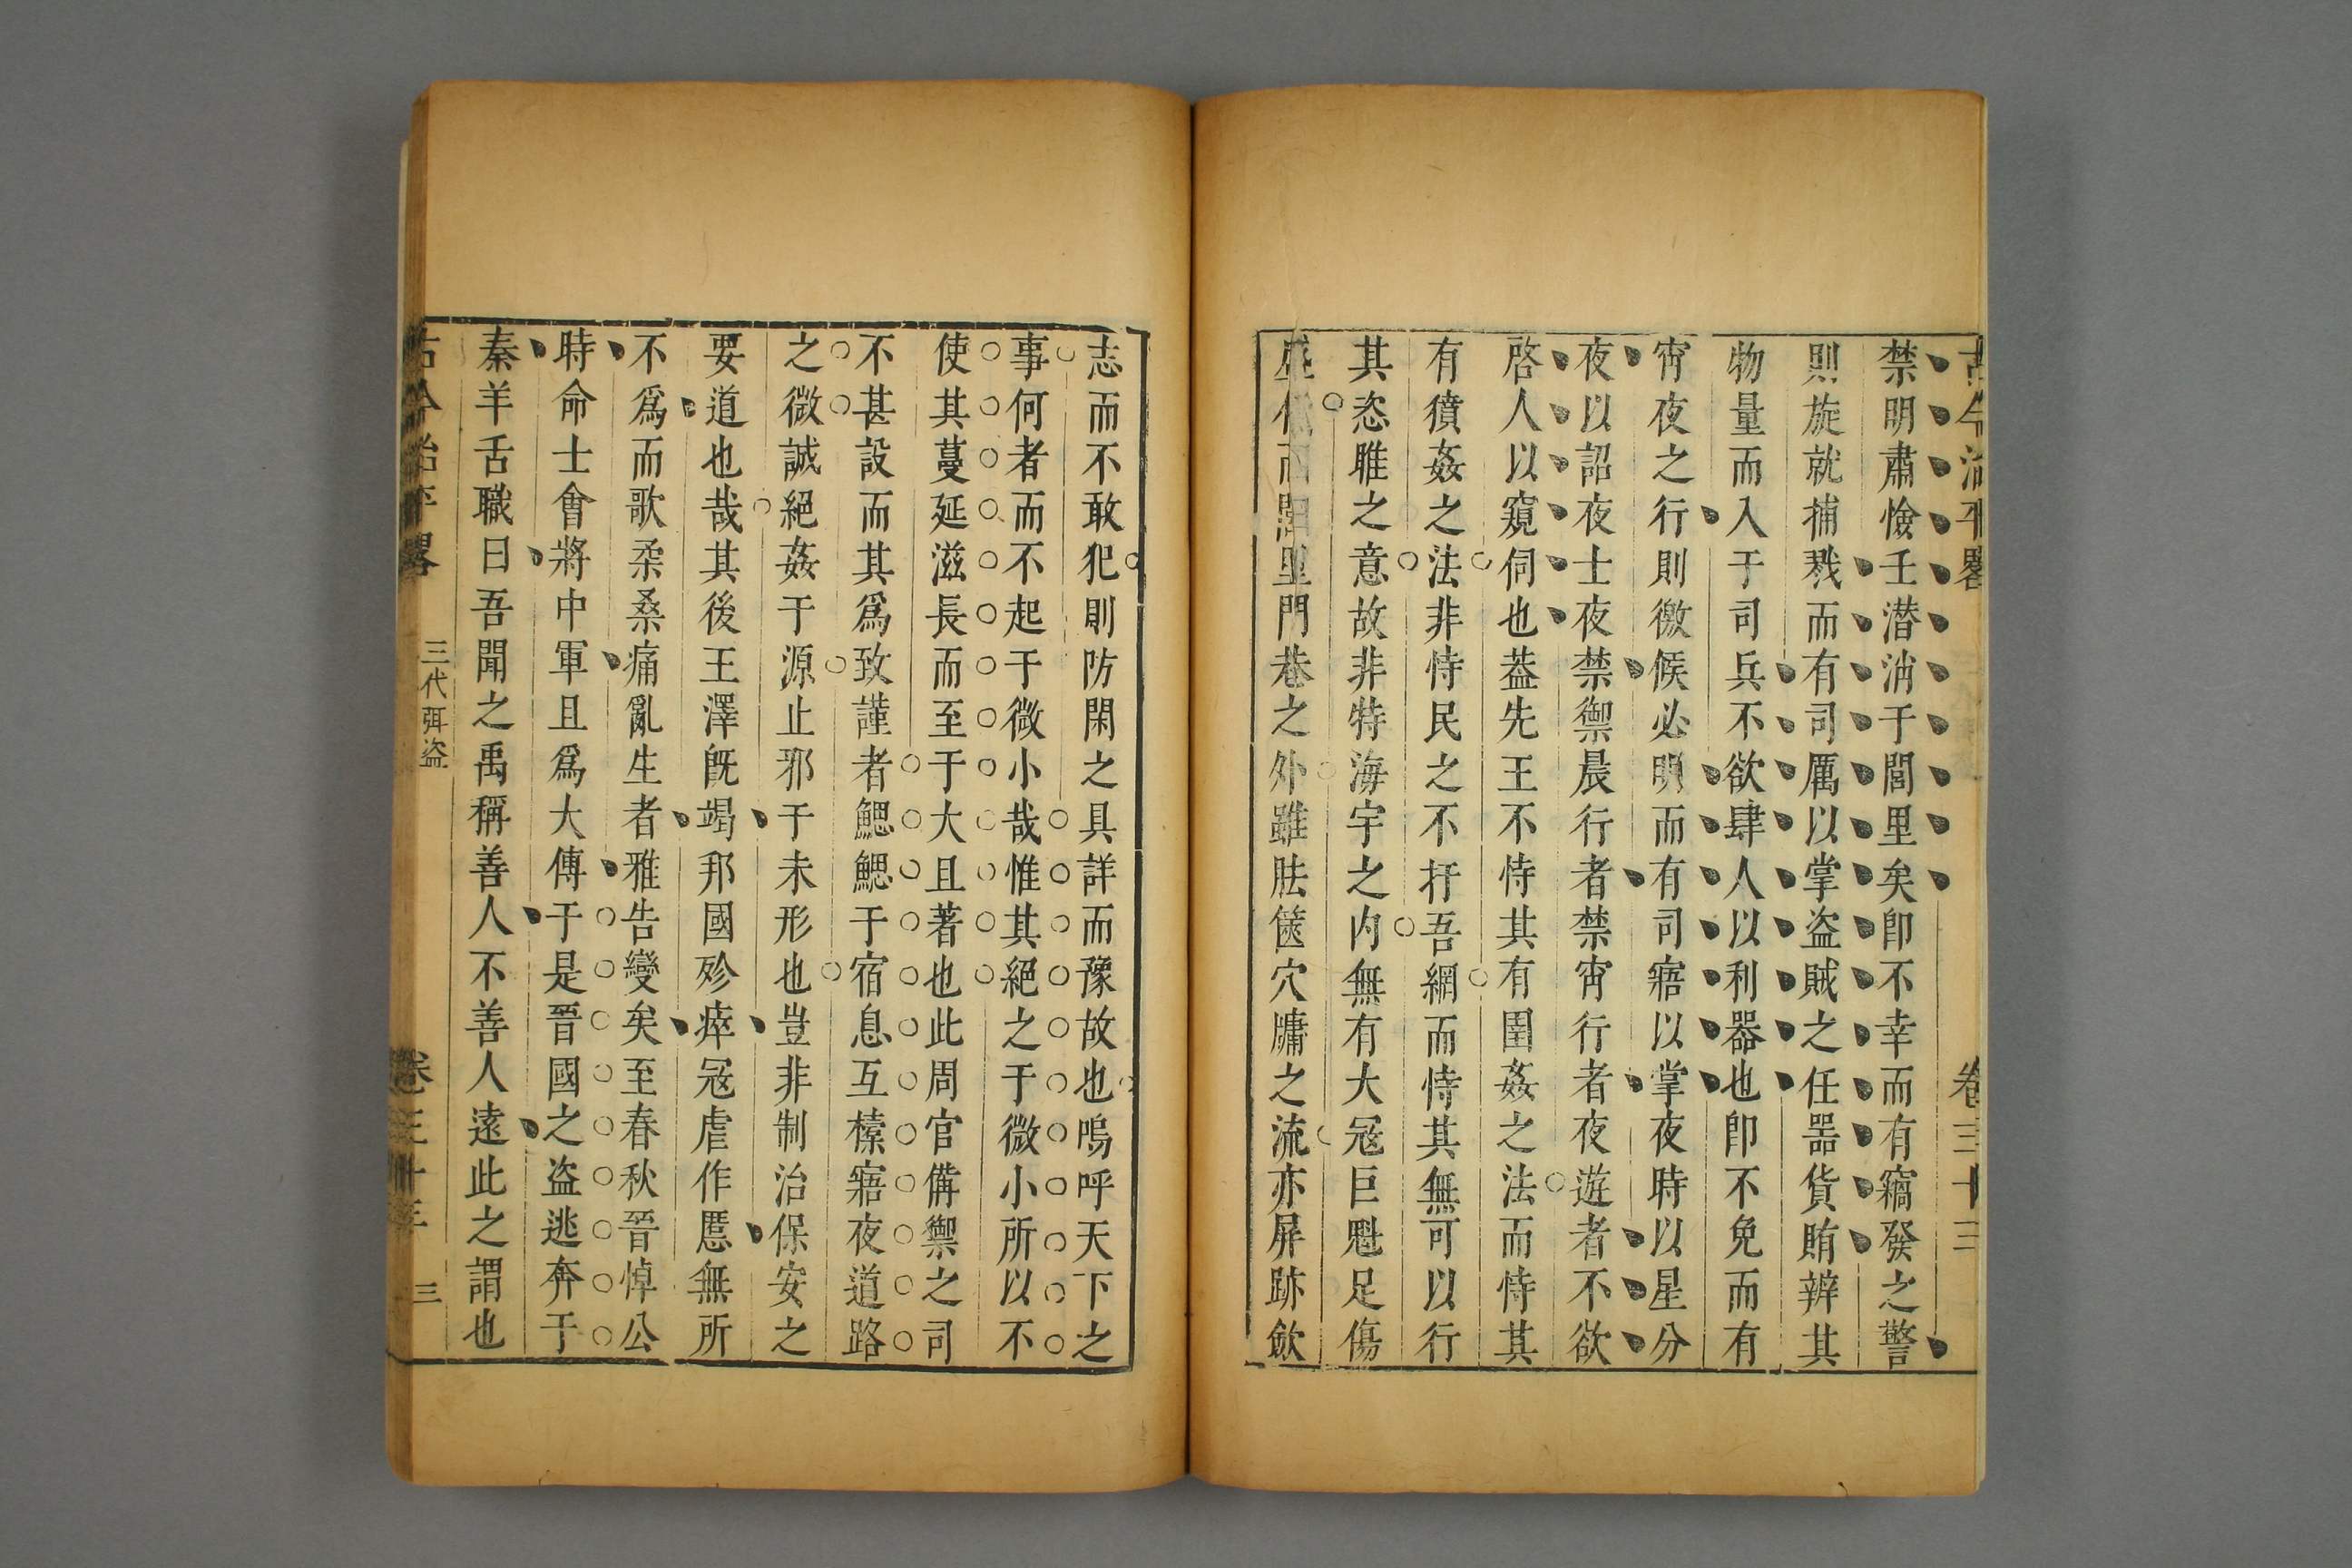 古今治平畧 卷三十三
禁明肅憸壬潛消于閭里矣卽不幸而有竊發之警
則旋就捕戮而有司厲以掌盜賊之任噐貨賄辨其
物量而入于司兵不欲肆人以利器也卽不免而有
宵夜之行則徼候必明而有司寤以掌夜時以星分
夜以詔夜士夜禁禦晨行者禁宵行者夜遊者不欲
啓人以窺伺也葢先王不恃其有圉姦之法而恃其
有獖姦之法非恃民之不扞吾網而恃其無可以行
其恣雎之意故非特海宇之内無有大冦巨魁足傷
而里門巷之外雖胠篋穴牗之流亦屏跡歛
志而不敢犯則防閑之具詳而豫故也嗚呼天下之
事何者而不起于微小哉惟其絕之于微小所以不
使其蔓延滋長而至于大且著也此周官備禦之司
不甚設而其爲致謹者鰓鰓于宿息互㯿寤夜道路
之微誠絕姦于源止邪于未形也豈非制治保安之
要道也哉其後王澤旣竭邦國殄瘁冦虐作慝無所
不爲而歌柔桑痛亂生者雅告變矣至春秋晉悼公
時命士會將中軍且爲大傅于是晉國之盜逃奔于
秦羊舌職曰吾聞之禹稱善人不善人遠此之謂也
古今治平畧 三代弭盗 卷三十三 三